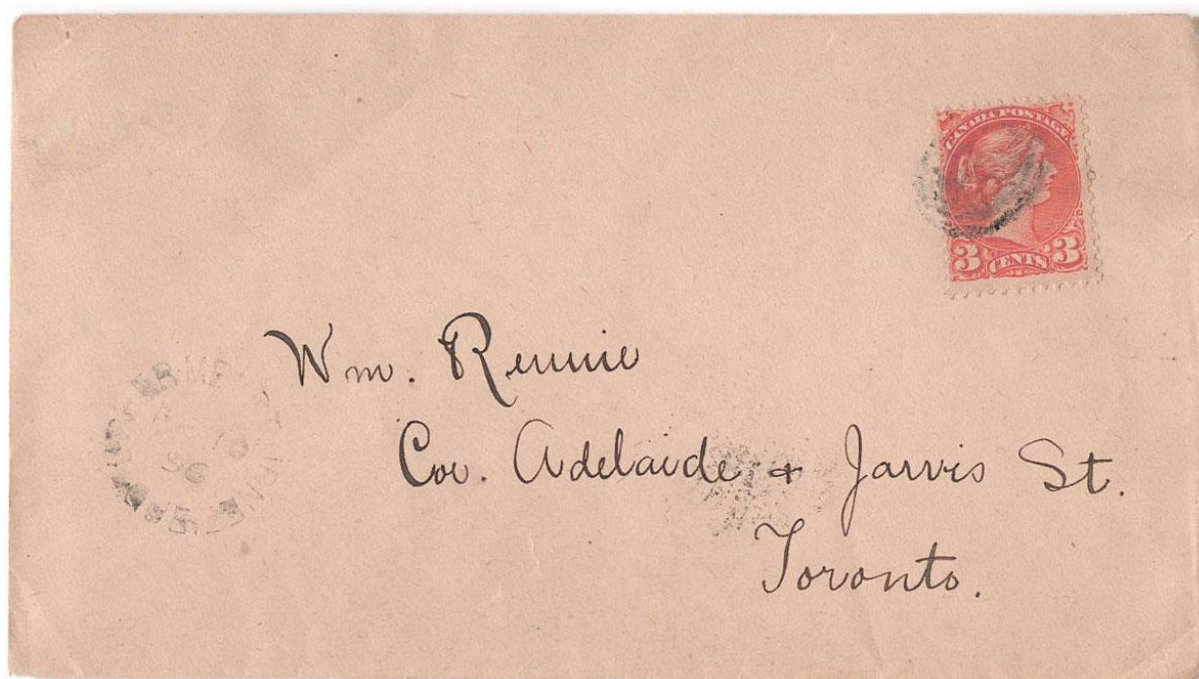 CANADA POSTAGE
3 CENTS 3
Wm. Rennie
Cor. Adelaide + Jarvis St.
Toronto.